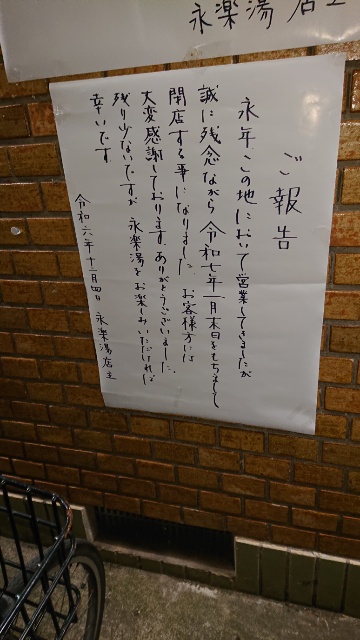 永楽湯店主
ご報告
永年、この地において営業してきましたが
誠に残念ながら令和七年一月末日をもちまして
閉店する事になりました お客様方には
大変感謝しております。ありがとうございました。
残り少ないですが 永楽湯をお楽しみいただければ
幸いです
令和六年十二月四日 永楽湯店主